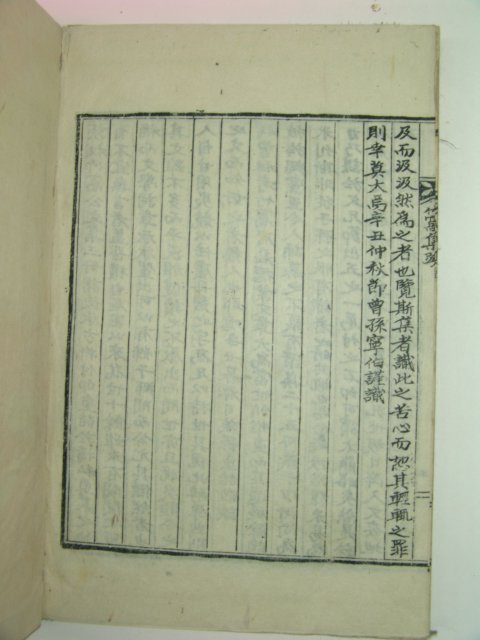 及而汲汲然爲之者也覽斯集者識此之苦心而恕其輕輒之罪
則幸莫大焉辛丑仲秋節曾孫寧伯謹識